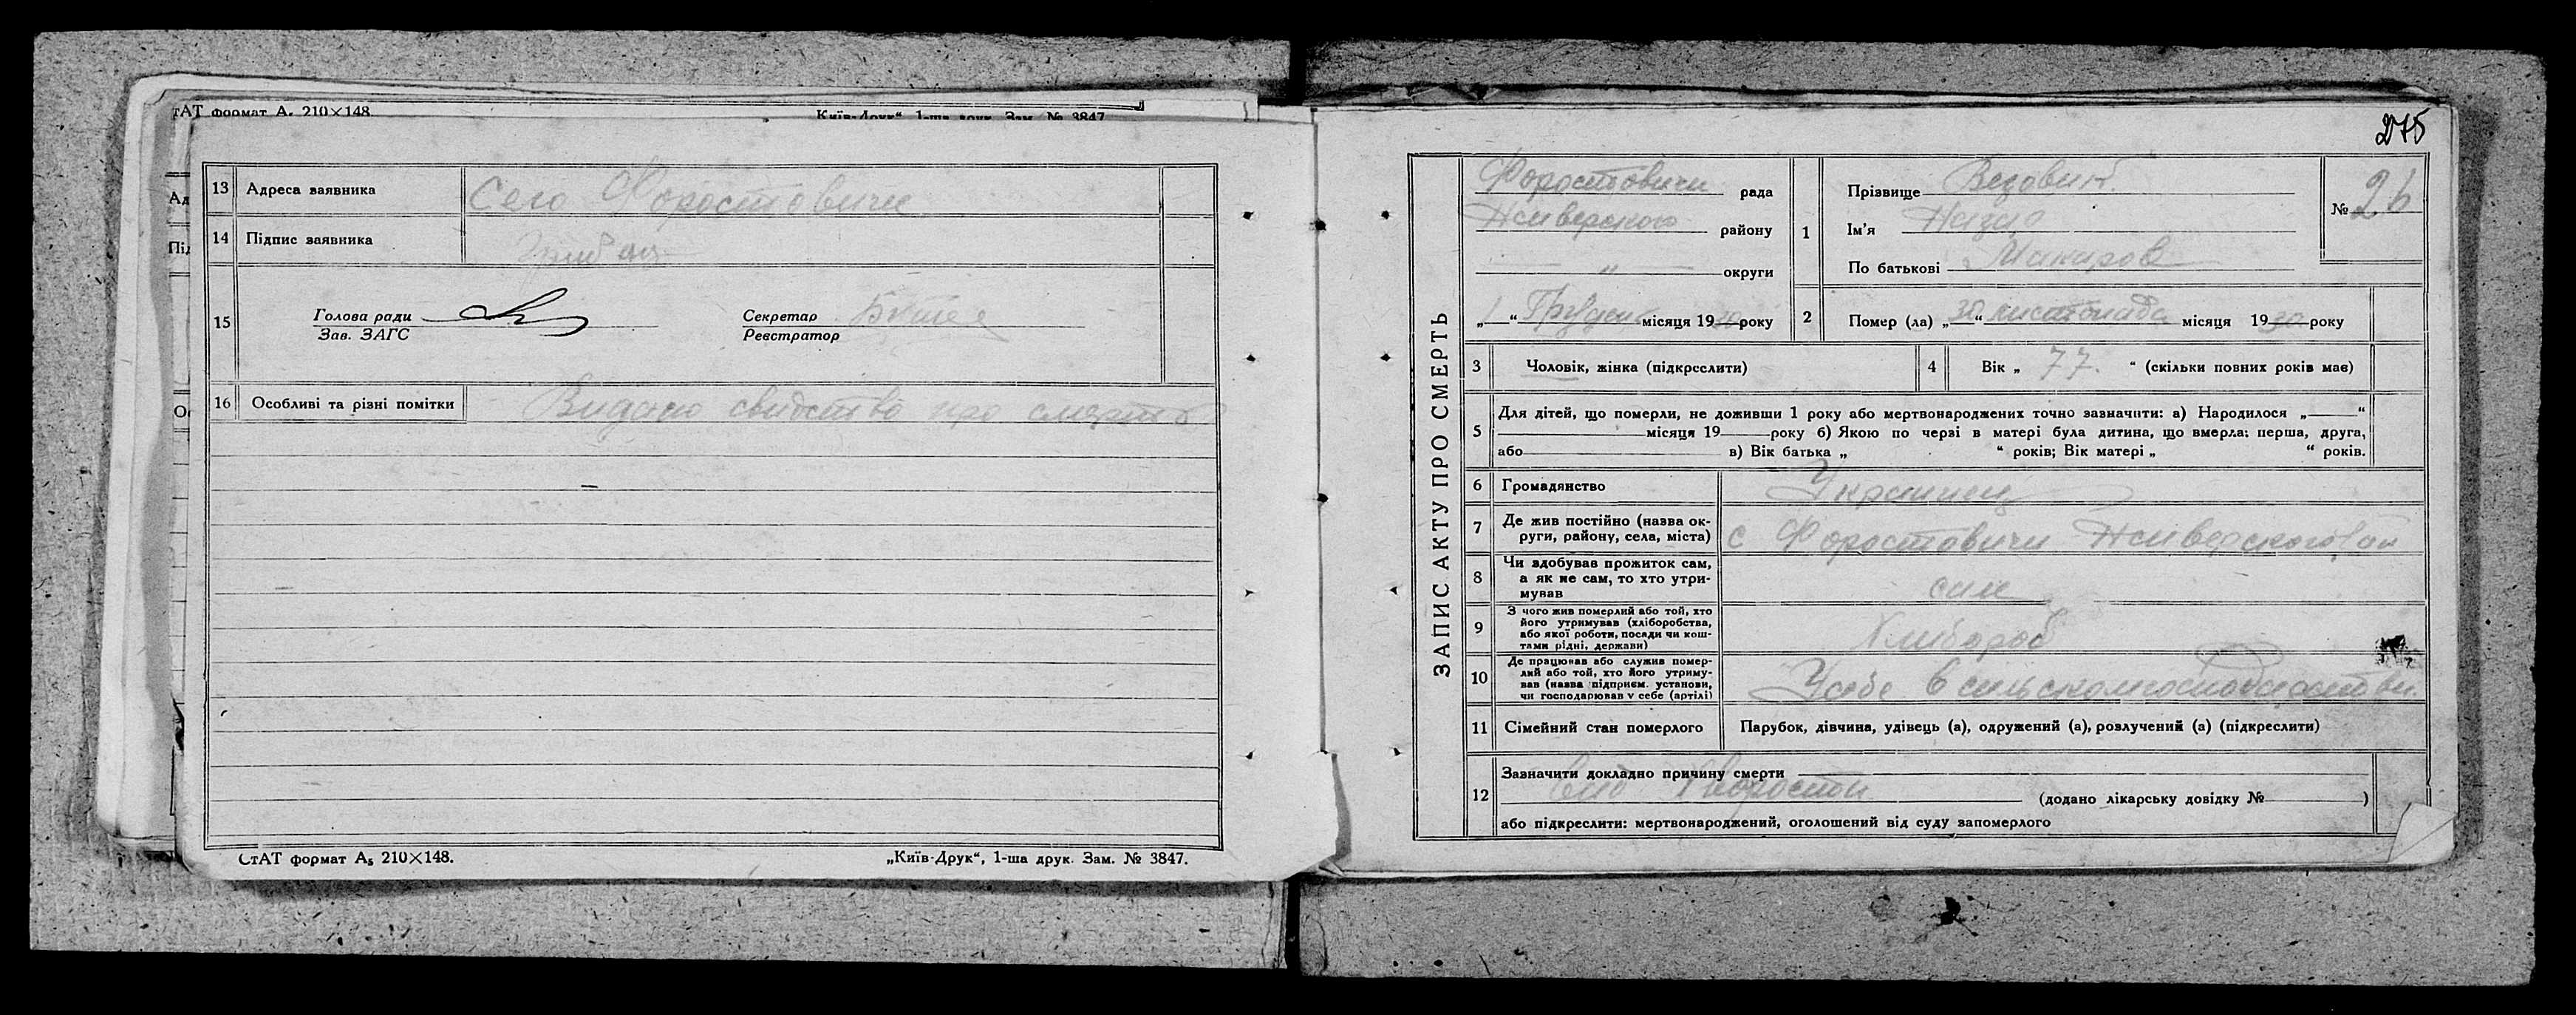 тАТ формат А₅ 210×148
„Київ-Друк“, 1-ша друк. Зам. № 3847
Ад
Під
Ос
13 Адреса заявника Село Форостовичи
14 Підпис заявника
15 Голова ради Секретар
Зав. ЗАГС Реєстратор
16 Особливі та різні помітки Видано свидство про смерть
СтАТ формат А₅ 210×148.
„Київ-Друк“, 1-ша друк. Зам. № 3847.
275
ЗАПИС АКТУ ПРО СМЕРТЬ
Форостовичи рада
району
— „ — округи
„1“ Грудня місяця 1930 року
1 Прізвище
Ім'я Назар
По батькові Макаров
№ 26
2 Помер (ла) „30“ листопада місяця 1930 року
3 Чоловік, жінка (підкреслити)
4 Вік „ 77. “ (скільки повних років має)
5 Для дітей, що померли, не доживши 1 року або мертвонароджених точно зазначити: а) Народилося „ “
місяця 19 року б) Якою по черзі в матері була дитина, що вмерла: перша, друга,
або в) Вік батька „ “ років; Вік матері „ “ років.
6 Громадянство Украинец
7 Де жив постійно (назва ок-
руги, району, села, міста) с Форостовичи
8 Чи здобував прожиток сам,
а як не сам, то хто утри-
мував сам
9 З чого жив померлий або той, хто
його утримував (хліборобства,
або якої роботи, посади чи кош-
тами рідні, держави) Хлибороб
10 Де працював або служив помер-
лий або той, хто його утриму-
вав (назва підприєм. установи,
чи господарював у себе (артілі) Усебе в сильском господарстви
11 Сімейний стан померлого Парубок, дівчина, удівець (а), одружений (а), розлучений (а) (підкреслити)
12 Зазначити докладно причину смерти
вид хворости (додано лікарську довідку № )
або підкреслити: мертвонароджений, оголошений від суду запомерлого